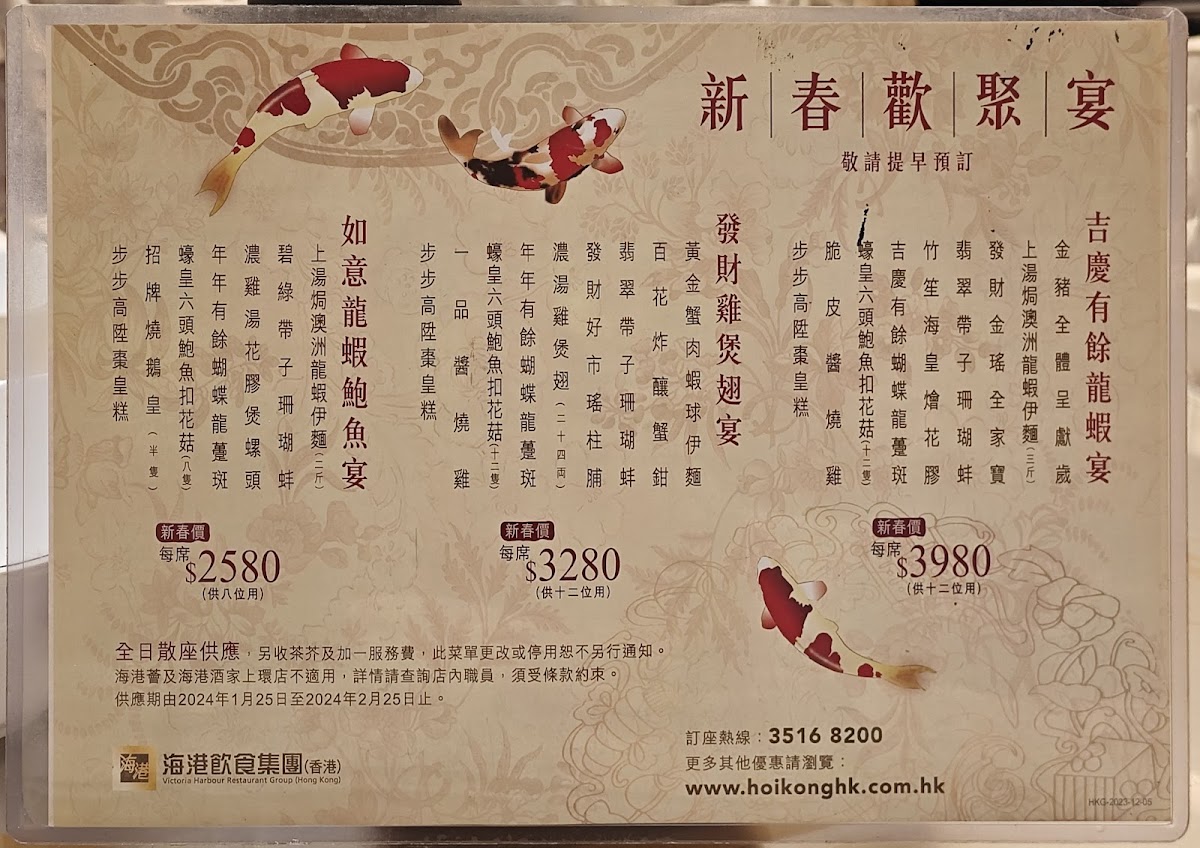 新春歡聚宴
敬請提早預訂
吉慶有餘龍蝦宴
金豬全體呈獻歲
上湯焗澳洲龍蝦伊麵(三斤)
發財金瑤全家寶
翡翠帶子珊瑚蚌
竹笙海皇燴花膠
吉慶有餘蝴蝶龍躉斑
蠔皇六頭鮑魚扣花菇(十二隻)
脆皮醬燒雞
步步高陞棗皇糕
新春價
每席$3980
(供十二位用)
發財雞煲翅宴
黃金蟹肉蝦球伊麵
百花炸釀蟹鉗
翡翠帶子珊瑚蚌
發財好市瑤柱脯
濃湯雞煲翅(二十四両)
年年有餘蝴蝶龍躉斑
蠔皇六頭鮑魚扣花菇(十二隻)
一品醬燒雞
步步高陞棗皇糕
新春價
每席$3280
(供十二位用)
如意龍蝦鮑魚宴
上湯焗澳洲龍蝦伊麵(二斤)
碧綠帶子珊瑚蚌
濃雞湯花膠煲螺頭
年年有餘蝴蝶龍躉斑
蠔皇六頭鮑魚扣花菇(八隻)
招牌燒鵝皇(半隻)
步步高陞棗皇糕
新春價
每席$2580
(供八位用)
全日散座供應，另收茶芥及加一服務費，此菜單更改或停用恕不另行通知。
海港薈及海港酒家上環店不適用，詳情請查詢店內職員，須受條款約束。
供應期由2024年1月25日至2024年2月25日止。
海港
海港飲食集團(香港)
Victoria Harbour Restaurant Group (Hong Kong)
訂座熱線：3516 8200
更多其他優惠請瀏覽：
www.hoikonghk.com.hk
HKG-2023-12-05